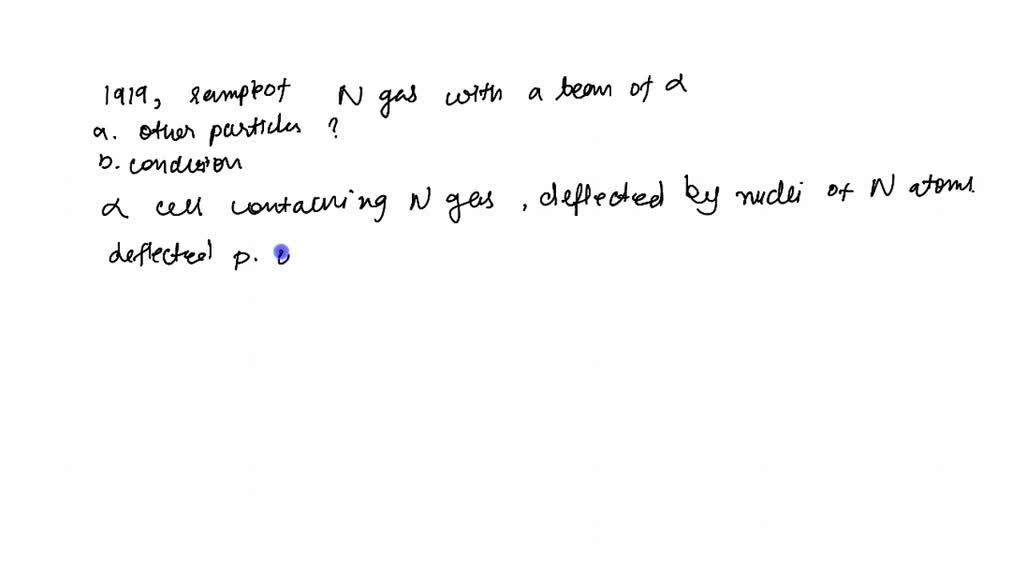 1919, sampkot N gas with a beam of α
a. other particles ?
b. conclusion
α cell containing N gas , deflected by nuclei of N atoms.
deflected p.